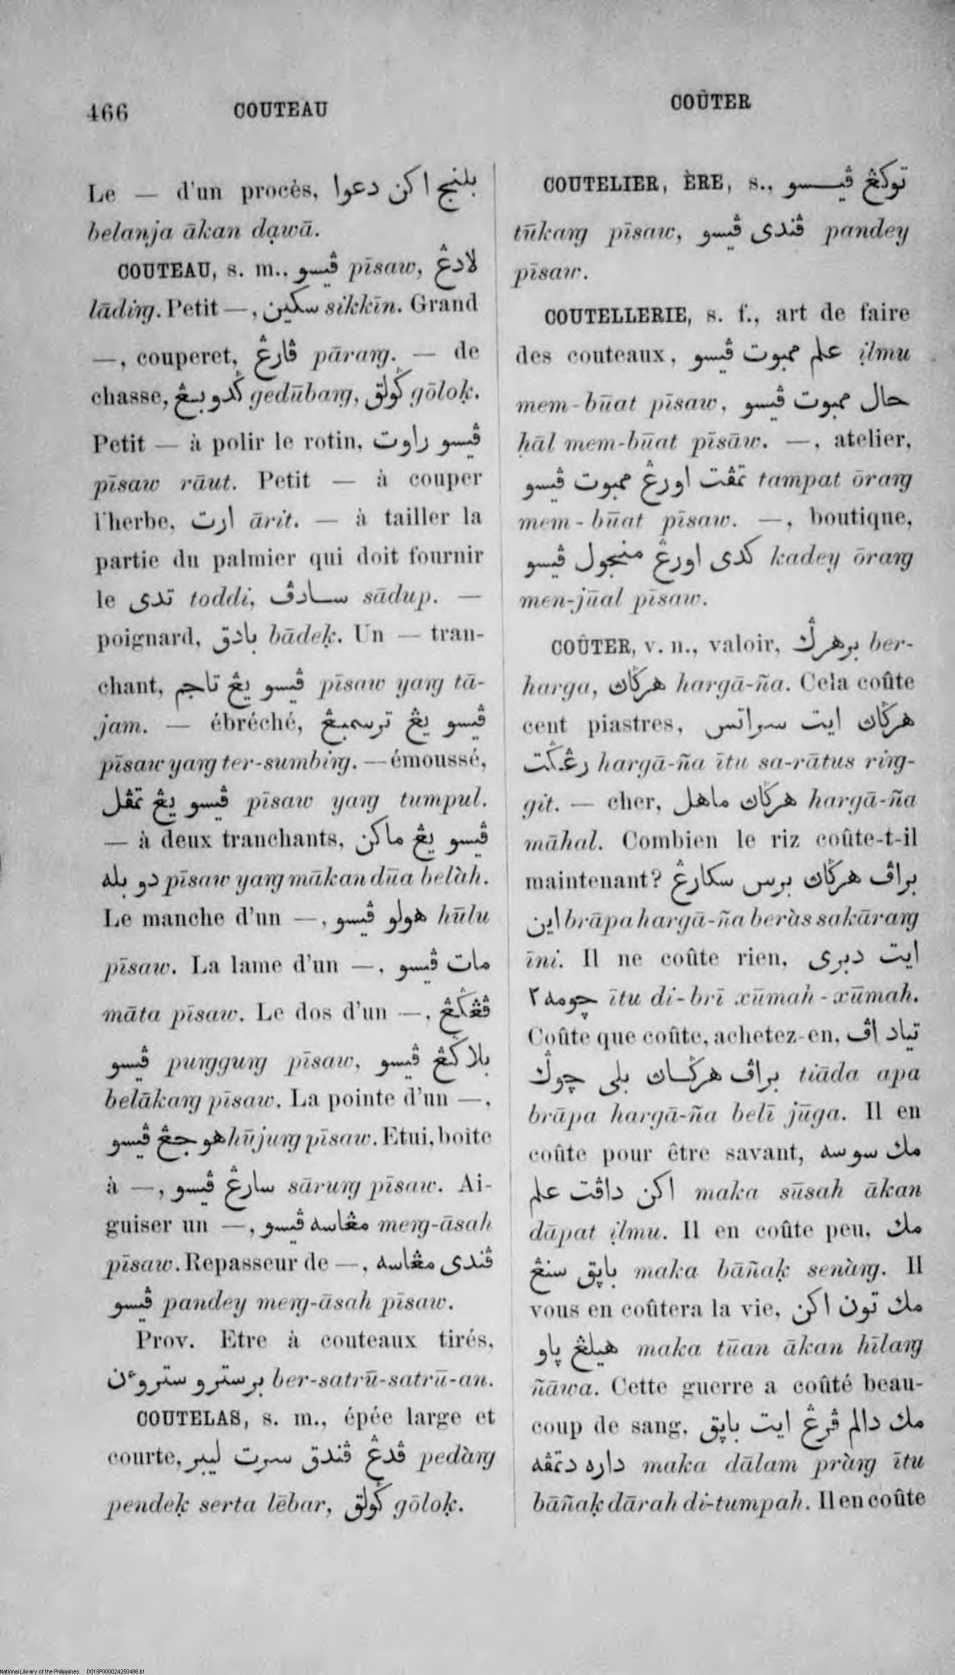 466 COUTEAU
COÛTER
Le — d'un procès, بلنج اکن دعوا
belanja ākan dạwā.
COUTEAU, s. m., ڤيسو pīsaw, لادڠ
lādiṅg. Petit —, سکين sikkīn. Grand
—, couperet, ڤارڠ pāraṅg. — de
chasse, ݢدوبڠ gedūbaṅg, ݢولق gōloḳ.
Petit — à polir le rotin, ڤيسو راوت
pīsaw rāut. Petit — à couper
l'herbe, ارت ārit. — à tailler la
partie du palmier qui doit fournir
le تدی toddi, سادڤ sādup. —
poignard, بادق bādeḳ. Un — tran-
chant, ڤيسو يڠ تاجم pīsaw yaṅg tā-
jam. — ébréché, ڤيسو يڠ ترسمبڠ
pīsaw yaṅg ter-sumbiṅg. — émoussé,
ڤيسو يڠ تمڤل pīsaw yaṅg tumpul.
— à deux tranchants, ڤيسو يڠ ماکن
دو بله pīsaw yaṅg mākan dūa belàh.
Le manche d'un —, هولو ڤيسو hūlu
pīsaw. La lame d'un —, مات ڤيسو
māta pīsaw. Le dos d'un —, ڤڠݢڠ
ڤيسو puṅgguṅg pīsaw, بلاکڠ ڤيسو
belākaṅg pīsaw. La pointe d'un —,
هوجڠ ڤيسو hūjuṅg pīsaw. Etui, boîte
à —, سارڠ ڤيسو sāruṅg pīsaw. Ai-
guiser un —, مڠاسه ڤيسو meṅg-āsah
pīsaw. Repasseur de —, ڤندی مڠاسه
ڤيسو pandey meṅg-āsah pīsaw.
Prov. Etre à couteaux tirés,
برسترو ستروءن ber-satrū-satrū-an.
COUTELAS, s. m., épée large et
courte, ڤدڠ ڤندق سرت ليبر pedàṅg
pendeḳ serta lēbar, ݢولق gōloḳ.
COUTELIER, ÈRE, s., توکڠ ڤيسو
tūkaṅg pīsaw, ڤندی ڤيسو pandey
pīsaw.
COUTELLERIE, s. f., art de faire
des couteaux, علم ممبوت ڤيسو ịlmu
mem-būat pīsaw, حال ممبوت ڤيسو
ḥāl mem-būat pīsāw. —, atelier,
تمڤت اورڠ ممبوت ڤيسو tampat ōraṅg
mem-būat pīsaw. —, boutique,
کدی اورڠ منجول ڤيسو kadey ōraṅg
men-jūal pīsaw.
COÛTER, v. n., valoir, برهرݢ ber-
harga, هرݢاڽ hargā-ña. Cela coûte
cent piastres, هرݢاڽ ايت سراتس
رڠݢت hargā-ña ītu sa-rātus riṅg-
git. — cher, هرݢاڽ ماهل hargā-ña
māhal. Combien le riz coûte-t-il
maintenant? براڤ هرݢاڽ برس سکارڠ
اين brāpa hargā-ña beràs sakāraṅg
īni. Il ne coûte rien, ايت دبری
چومه٢ ītu di-brī xūmah-xūmah.
Coûte que coûte, achetez-en, تياد اڤ
براڤ هرݢاڽ بلی جوݢ tiāda apa
brāpa hargā-ña belī jūga. Il en
coûte pour être savant, مک سوسه
اکن داڤت علم maka sūsah ākan
dāpat ịlmu. Il en coûte peu, مک
باڽق سنڠ maka bāñaḳ senàṅg. Il
vous en coûtera la vie, مک تون اکن
هيلڠ ڽاو maka tūan ākan hīlaṅg
ñāwa. Cette guerre a coûté beau-
coup de sang, مک دالم ڤرڠ ايت باڽق
داره دتمڤه maka dālam pràṅg ītu
bāñaḳ dārah di-tumpah. Il en coûte
National Library of the Philippines